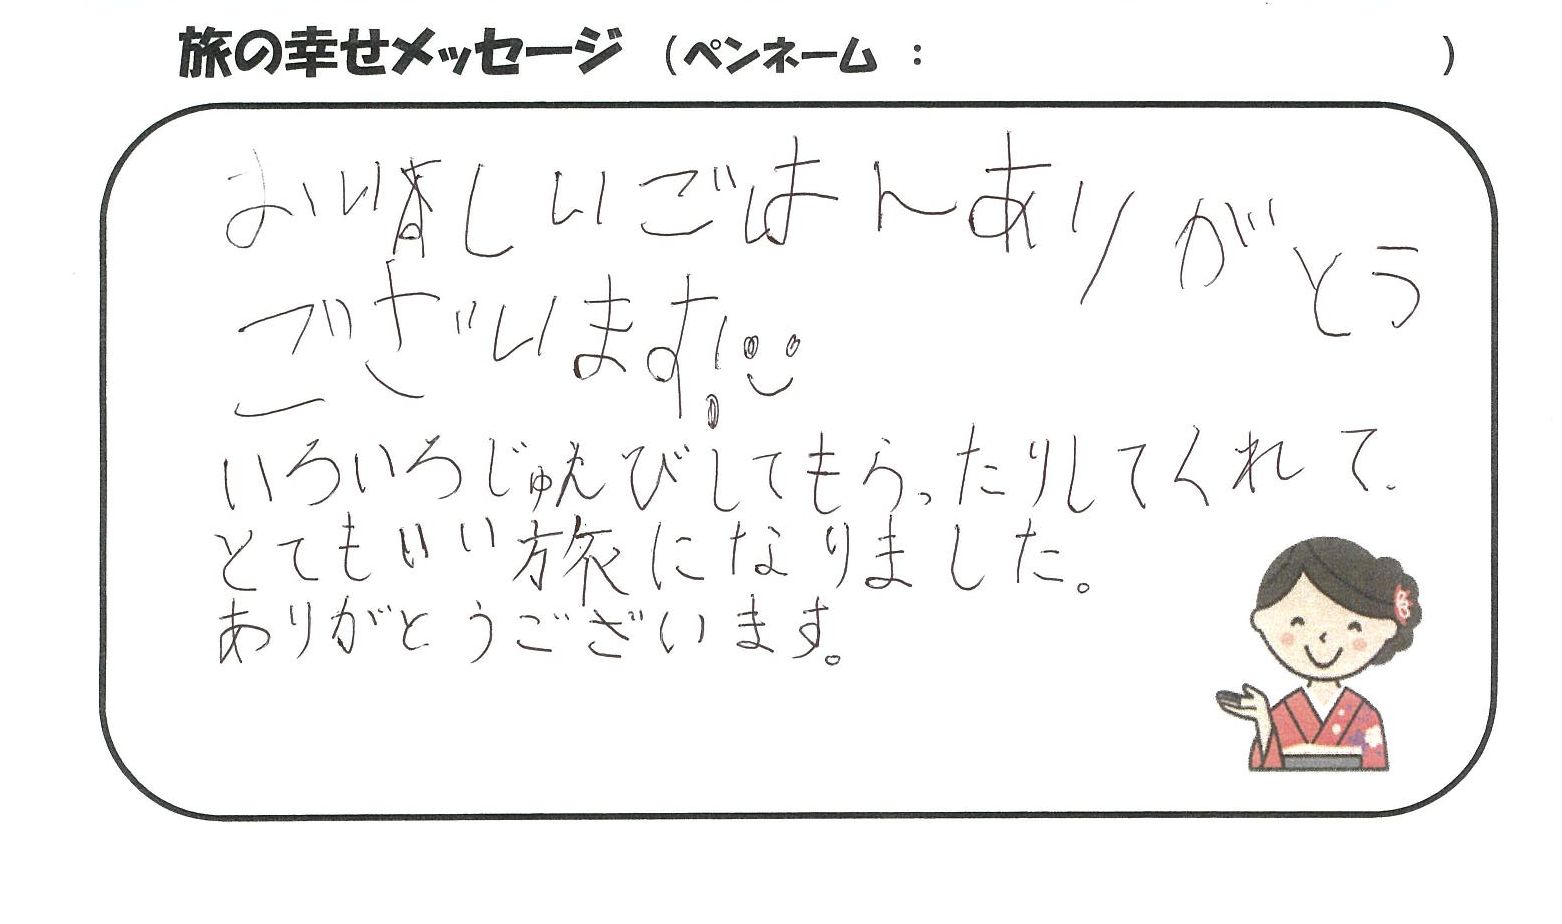 旅の幸せメッセージ (ペンネーム : )
おいしいごはんありがとう
ございます!
いろいろじゅんびしてもらったりしてくれて、
とてもいい旅になりました。
ありがとうございます。